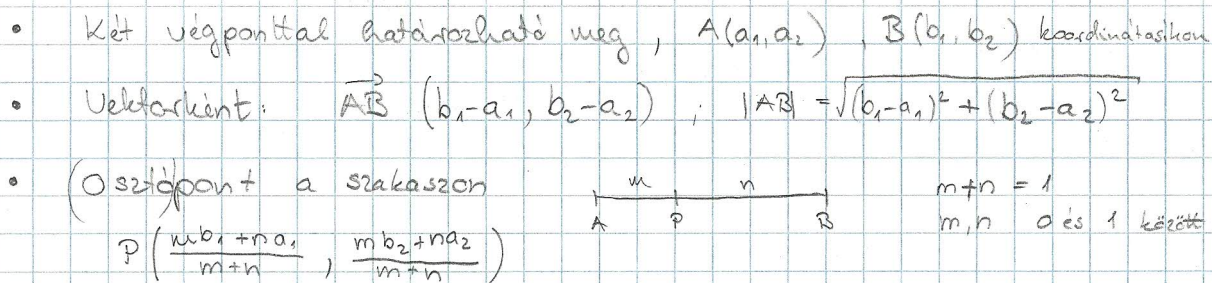 • Két végponttal határozható meg, A(a₁, a₂), B(b₁, b₂) koordinátasíkon
• Vektorként: \overrightarrow{AB} (b₁-a₁, b₂-a₂); |AB| = √((b₁-a₁)² + (b₂-a₂)²)
• (Osztó)pont a szakaszon m n m+n = 1
A P B m, n 0 és 1 között
P( (mb₁+na₁)/(m+n), (mb₂+na₂)/(m+n) )